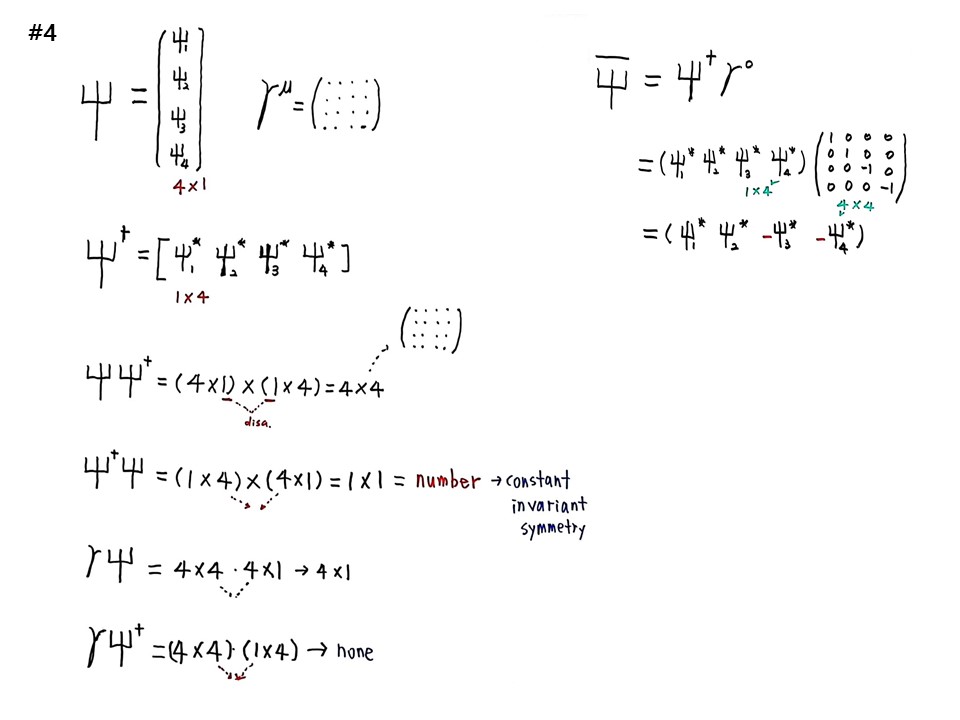 #4
Ψ = (Ψ₁ Ψ₂ Ψ₃ Ψ₄)
4×1
γ^μ = ( )
Ψ† = [Ψ₁* Ψ₂* Ψ₃* Ψ₄*]
1×4
ΨΨ† = (4×1)×(1×4)=4×4
disa.
Ψ†Ψ = (1×4)×(4×1)=1×1 = number → constant
invariant
symmetry
γΨ = 4×4 · 4×1 → 4×1
γΨ† = (4×4)·(1×4) → none
Ψ̅ = Ψ†γ⁰
= (Ψ₁* Ψ₂* Ψ₃* Ψ₄*) (1 0 0 0
0 1 0 0
0 0 -1 0
0 0 0 -1)
1×4
4×4
= (Ψ₁* Ψ₂* -Ψ₃* -Ψ₄*)